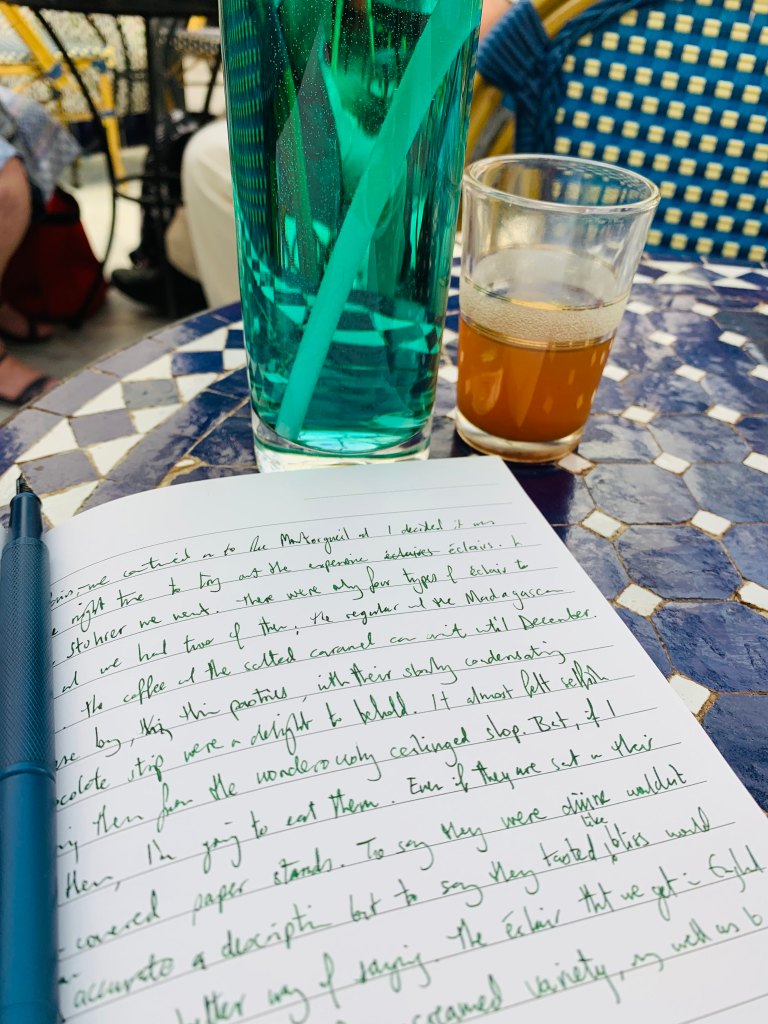 we continued on to Rue Montorgueil and I decided it was
right time to try out the expensive éclaires éclairs. In
Stohrer we went. There were only four types of éclair to
and we had two of them; the regular and the Madagascan
The coffee and the salted caramel can wait until December.
long, thin pastries, with their slowly condensating
strip were a delight to behold. It almost felt selfish
them from the wonderously ceilinged shop. But, if I
then, I'm going to eat them. Even if they are sat in their
covered paper stands. To say they were divine wouldn't
accurate a description but to say they tasted like bliss would
better way of saying. The éclair that we get in England
creamed variety, as well as